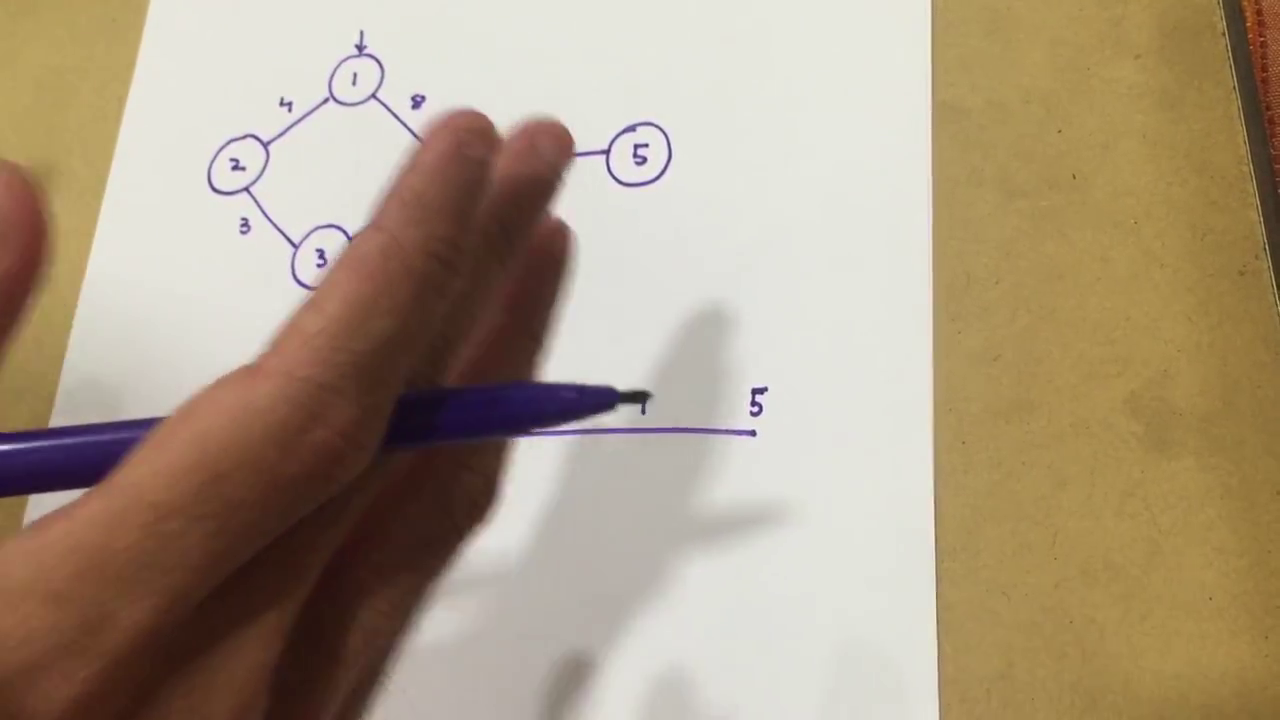 1
4 8
2 5
3
3
5